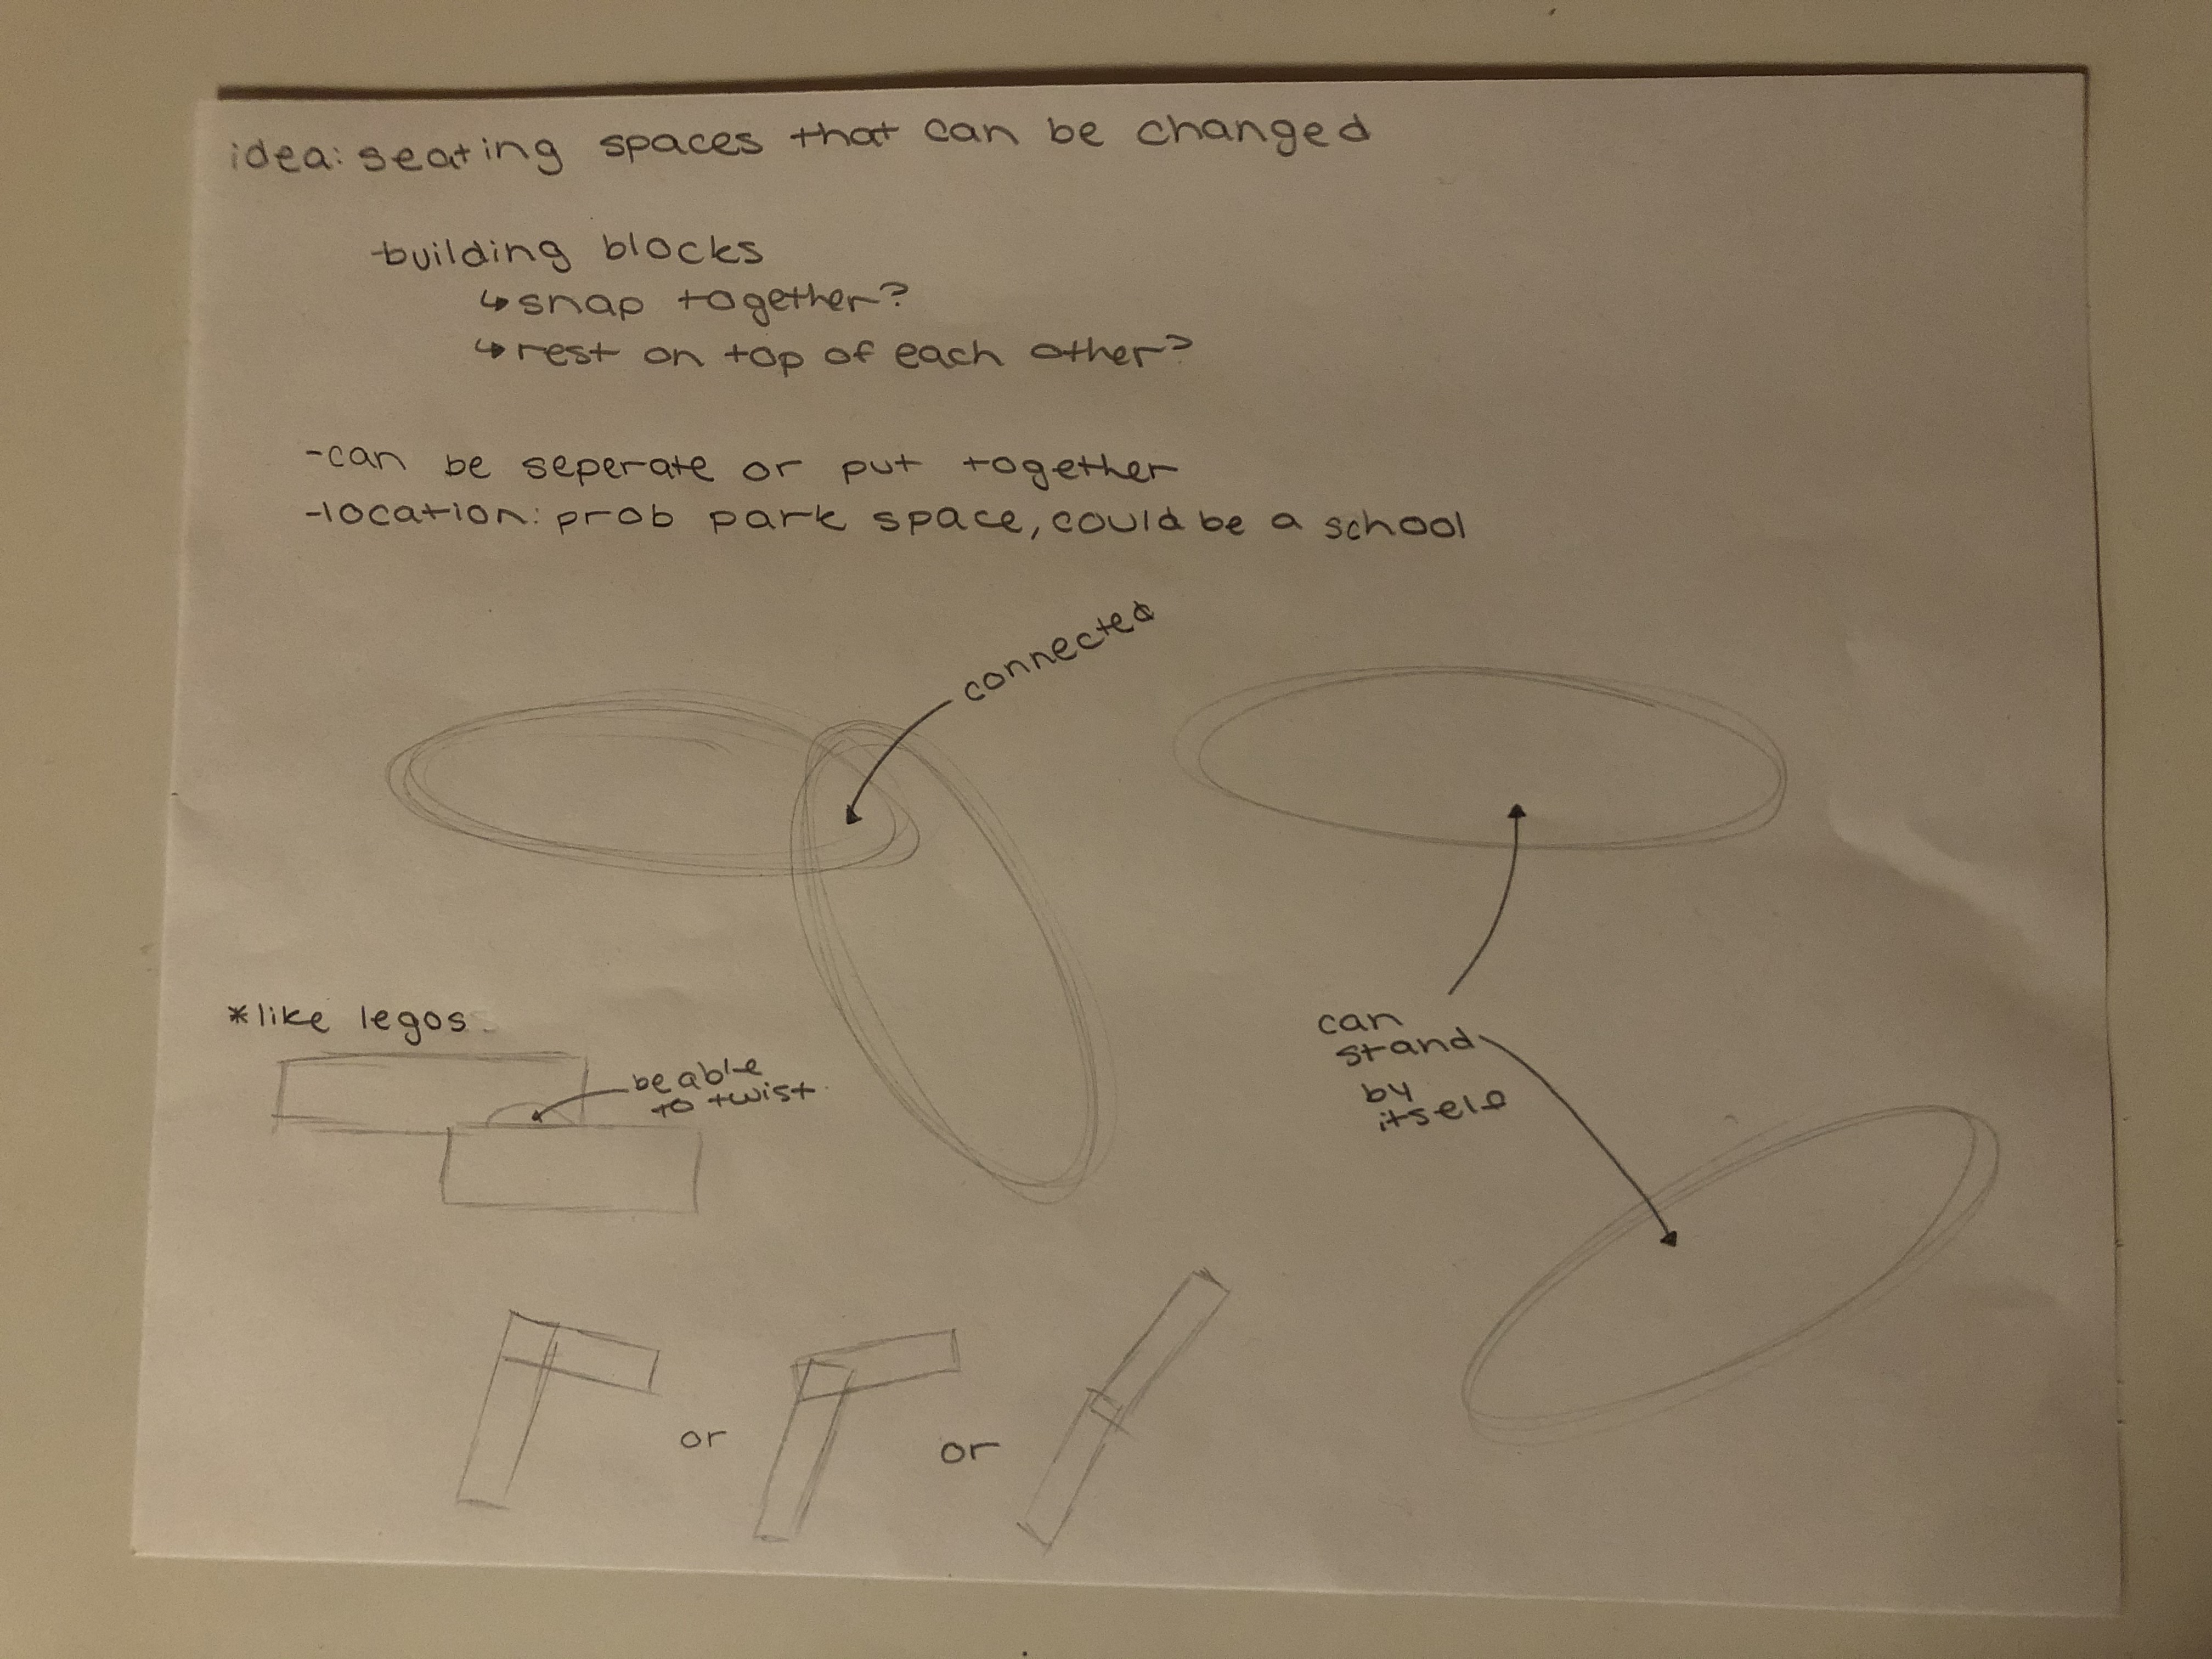 idea: seating spaces that can be changed
-building blocks
↳ snap together?
↳ rest on top of each other?
-can be seperate or put together
-location: prob park space, could be a school
connected
*like legos
be able
to twist
can
stand
by
itself
or
or